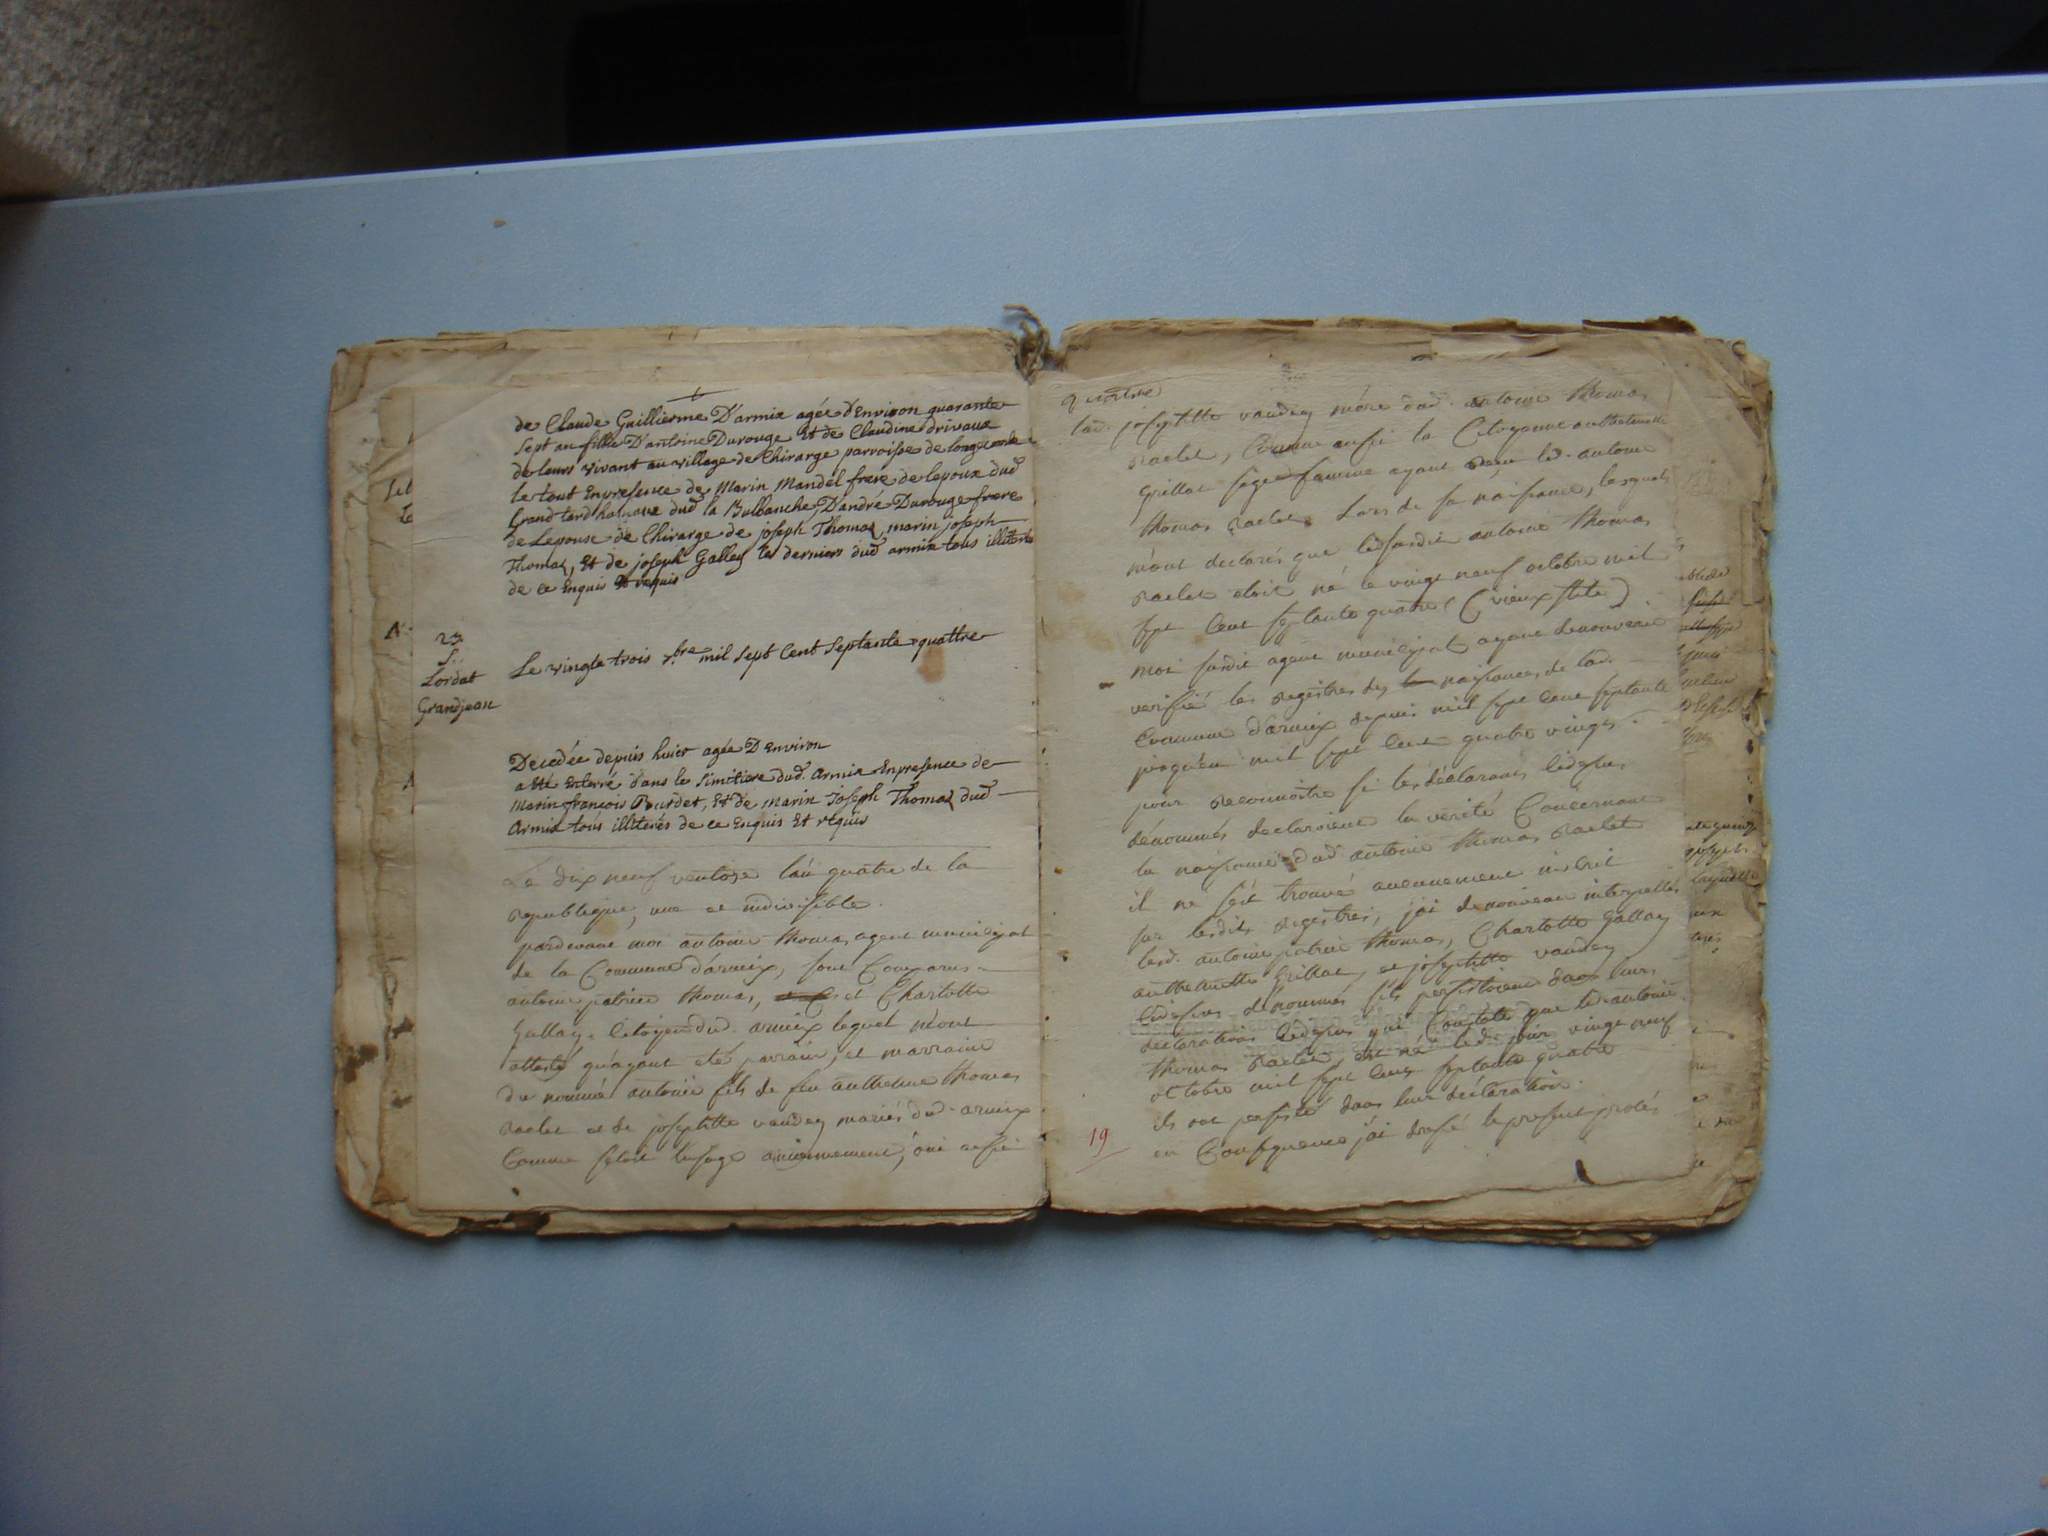 de Claude Guillierme D'armix agée d'Environ quarante
sept an fille D'antoine Durouge Et de Claudine drivaux
de leurs vivant au village de Chirarge parroisse de
le tout Enpresence de Marin Mandel frere de lepoux dud
Grand tard hameau dud la Bulbanche, D'andré Durouge frere
de Lepouse de Chirarge de joseph Thomaz, marin joseph
Thomaz, Et de joseph Galley les derniers dud armix tous illiterés
de ce Enquis Et requis
23
S.
Lordat
Grandjean
Le vingte trois 7.bre mil sept Cent Septante quattre
Decedée depuis huier agée D'Environ
a été Enterré dans le Simitiere dud. Armix Enpresence de
Marin francois Bourdet, Et de marin Joseph Thomaz dud
Armix tous illiterés de ce Enquis Et requis
Le dix neuf ventose l'an quatre de la
Republique, une et indivisible.
pardevant moi antoine thomas agent municipal
de la Commune d'armix, sont Comparus
antoine patrice thomas, et Charlotte
Gallay Citoyens dud. armix lequel m'ont
attesté qu'ayant eté parrain, et marraine
du nommé antoine fils de feu anthelme thomas
Raclet et de josephtte vaudey mariés dud. armix
Comme s'etoit l'usage anciennement, oui aussi
lad. josephtte vaudey mère dud. antoine thomas
Raclet, Comme aussi la Citoyenne anthelmette
Grillat sage femme ayant Reçu led. antoine
thomas Raclet Lors de sa naissance, lesquels
m'ont declarés que ledsusdit antoine thomas
Raclet etoit né le vingt neuf octobre mil
sept Cent septante quatre (vieux stile)
moi susdit agent municipal ayant denouveau
verifié les Registres des naissances de lad.
Commune d'armix depuis mil sept cent septante
jusqu'en mil sept cent quatre vingt
pour Reconnoitre si les déclarans cidessus
dénommés declaroient la verité Concernant
la naissance dud antoine thomas Raclet
il ne s'est trouvé aucunement inscrit
sur lesdits Registres, j'ai denouveau interpellés
lesd. antoine patrice thomas, Charlotte Gallay
anthelmette Grillat, et josephtte vaudey
cidessus dénommés s'ils persistoient dans leurs
déclarations cidessus qui Constate que led. antoine
thomas Raclet, est né led. jour vingt neuf
octobre mil sept cent septante quatre
ils ont persisté dans leur déclaration.
en Consequence j'ai dressé le present procès
19